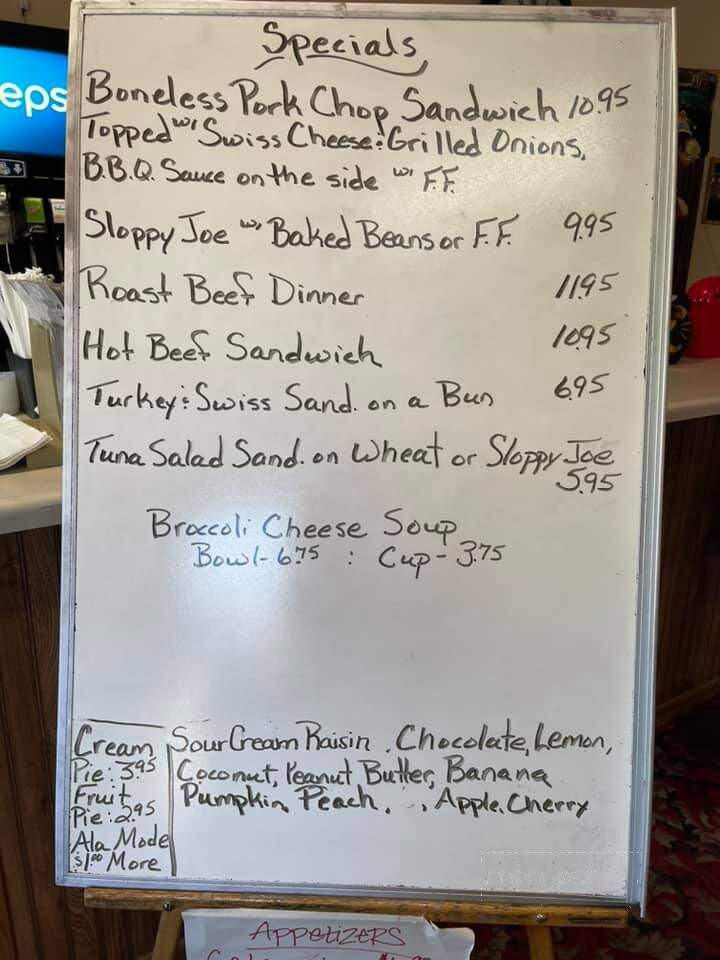 Specials
eps
Boneless Pork Chop Sandwich 10.95
Topped w/ Swiss Cheese & Grilled Onions,
B.B.Q. Sauce on the side w/ F.F.
Sloppy Joe w/ Baked Beans or F.F. 9.95
Roast Beef Dinner 11.95
Hot Beef Sandwich 10.95
Turkey & Swiss Sand. on a Bun 6.95
Tuna Salad Sand. on Wheat or Sloppy Joe
5.95
Broccoli Cheese Soup
Bowl - 6.75 : Cup - 3.75
Cream
Pie: 3.95
Fruit
Pie: 2.95
Ala Mode
$1.00 More
Sour Cream Raisin, Chocolate, Lemon,
Coconut, Peanut Butter, Banana
Pumpkin, Peach, ., Apple, Cherry
Appetizers